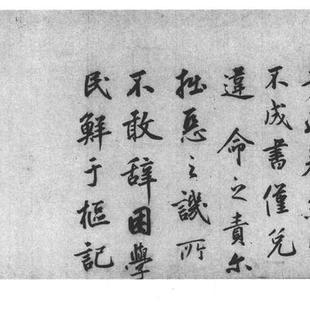 不成書僅免
違命之責尔
拙惡之譏所
不敢辭困學
民鮮于樞記